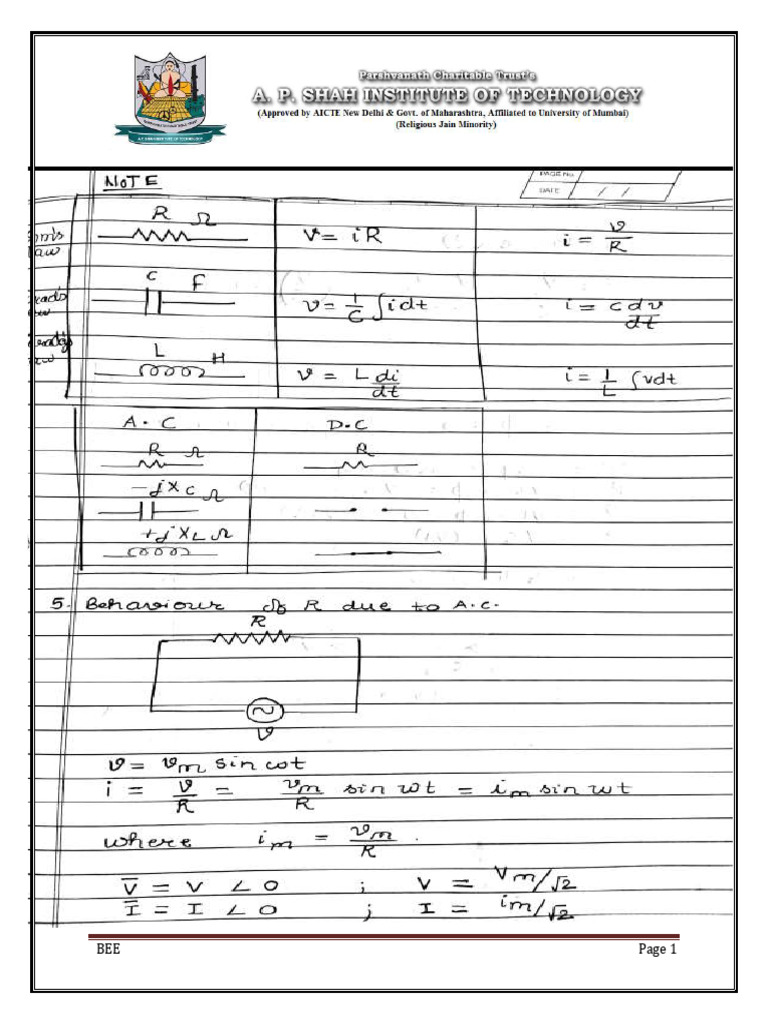 Parshvanath Charitable Trust's
A. P. SHAH INSTITUTE OF TECHNOLOGY
(Approved by AICTE New Delhi & Govt. of Maharashtra, Affiliated to University of Mumbai)
(Religious Jain Minority)
NOTE
PAGE No.
DATE / /
R Ω
V = iR
i = v/R
C F
v = 1/C ∫idt
i = C dv/dt
L H
v = L di/dt
i = 1/L ∫vdt
A.C D.C
R Ω R
-jXC Ω
+jXL Ω
5. Behaviour of R due to A.C.
R
v
v = vm sin ωt
i = v/R = vm/R sin ωt = im sin ωt
where im = vm/R .
V̅ = V ∠0 ; V = Vm/√2
I̅ = I ∠0 ; I = im/√2
BEE Page 1